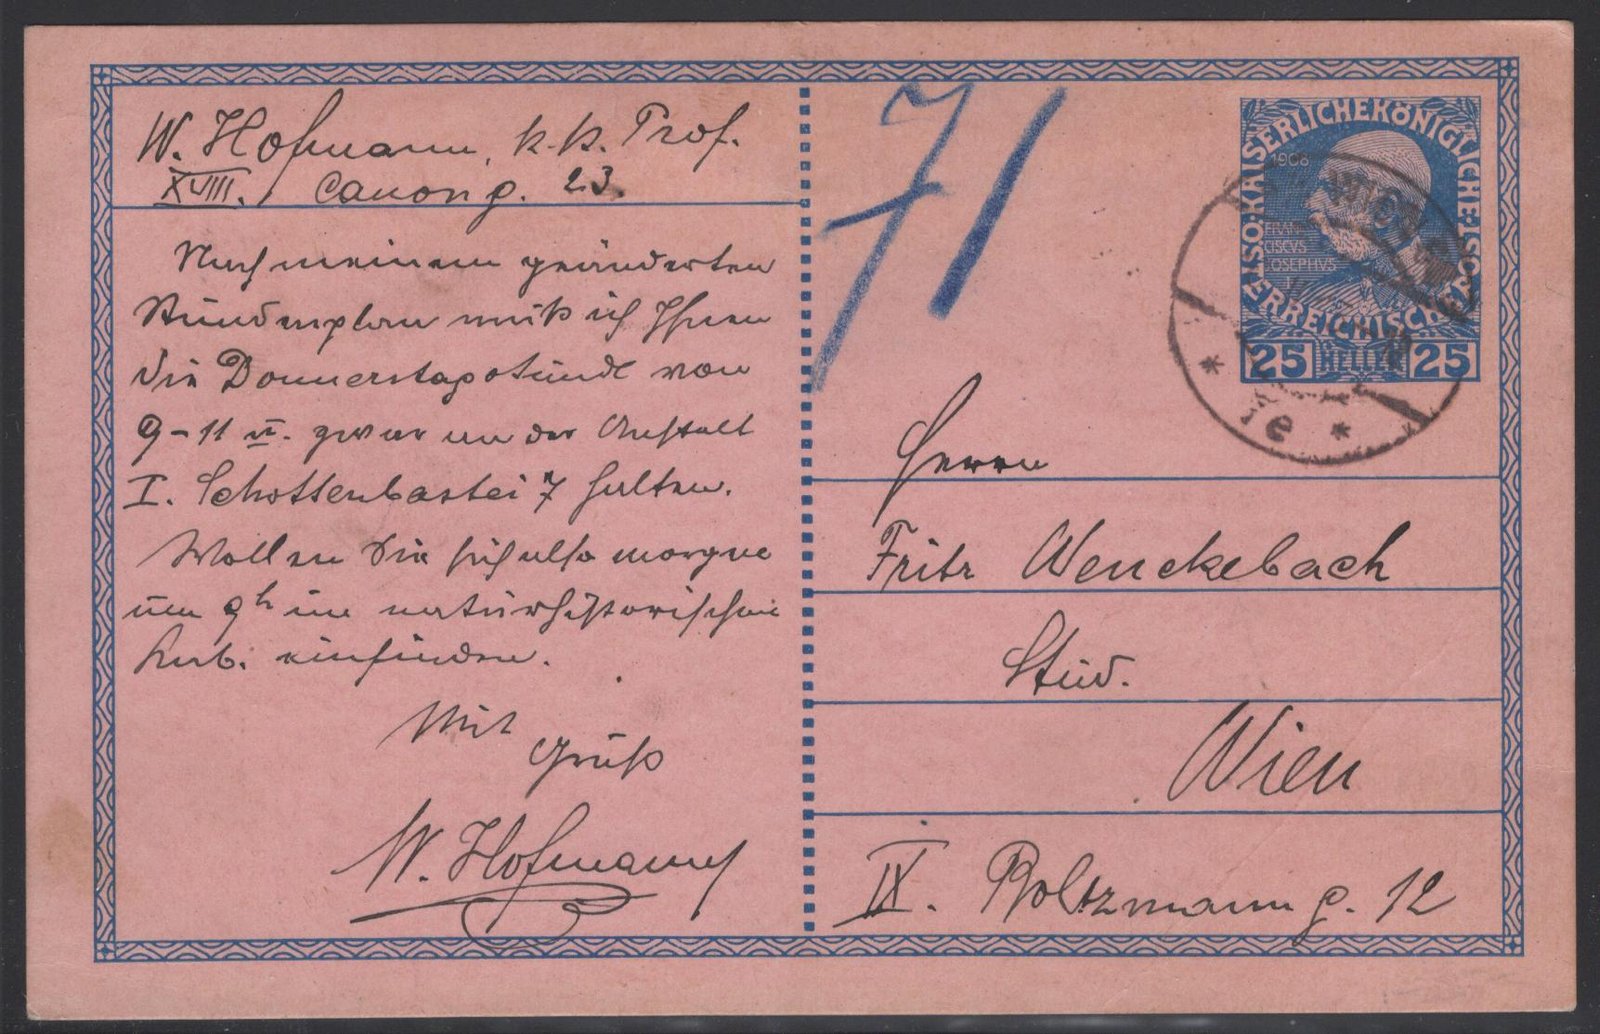 W. Hofmann, k. k. Prof.
XVIII. Canong. 23.
Nach meinem geänderten
Stundenplan muß ich Ihnen
die Donnerstagstunde von
9-11 u. zwar an der Anstalt
I. Schottenbastei 7 halten.
Wollen Sie sich also morgen
um 9h im naturhistorischen
Kab. einfinden.
Mit
Gruß
W. Hofmann
71
KAISERLICHE KÖNIGLICHE
ÖSTERREICHISCHE
1908
FRAN
CISCVS
IOSEPHVS
25 HELLER 25
WIEN
* e *
Herrn
Fritz Wenckebach
Stud.
Wien
IX. Boltzmanng. 12